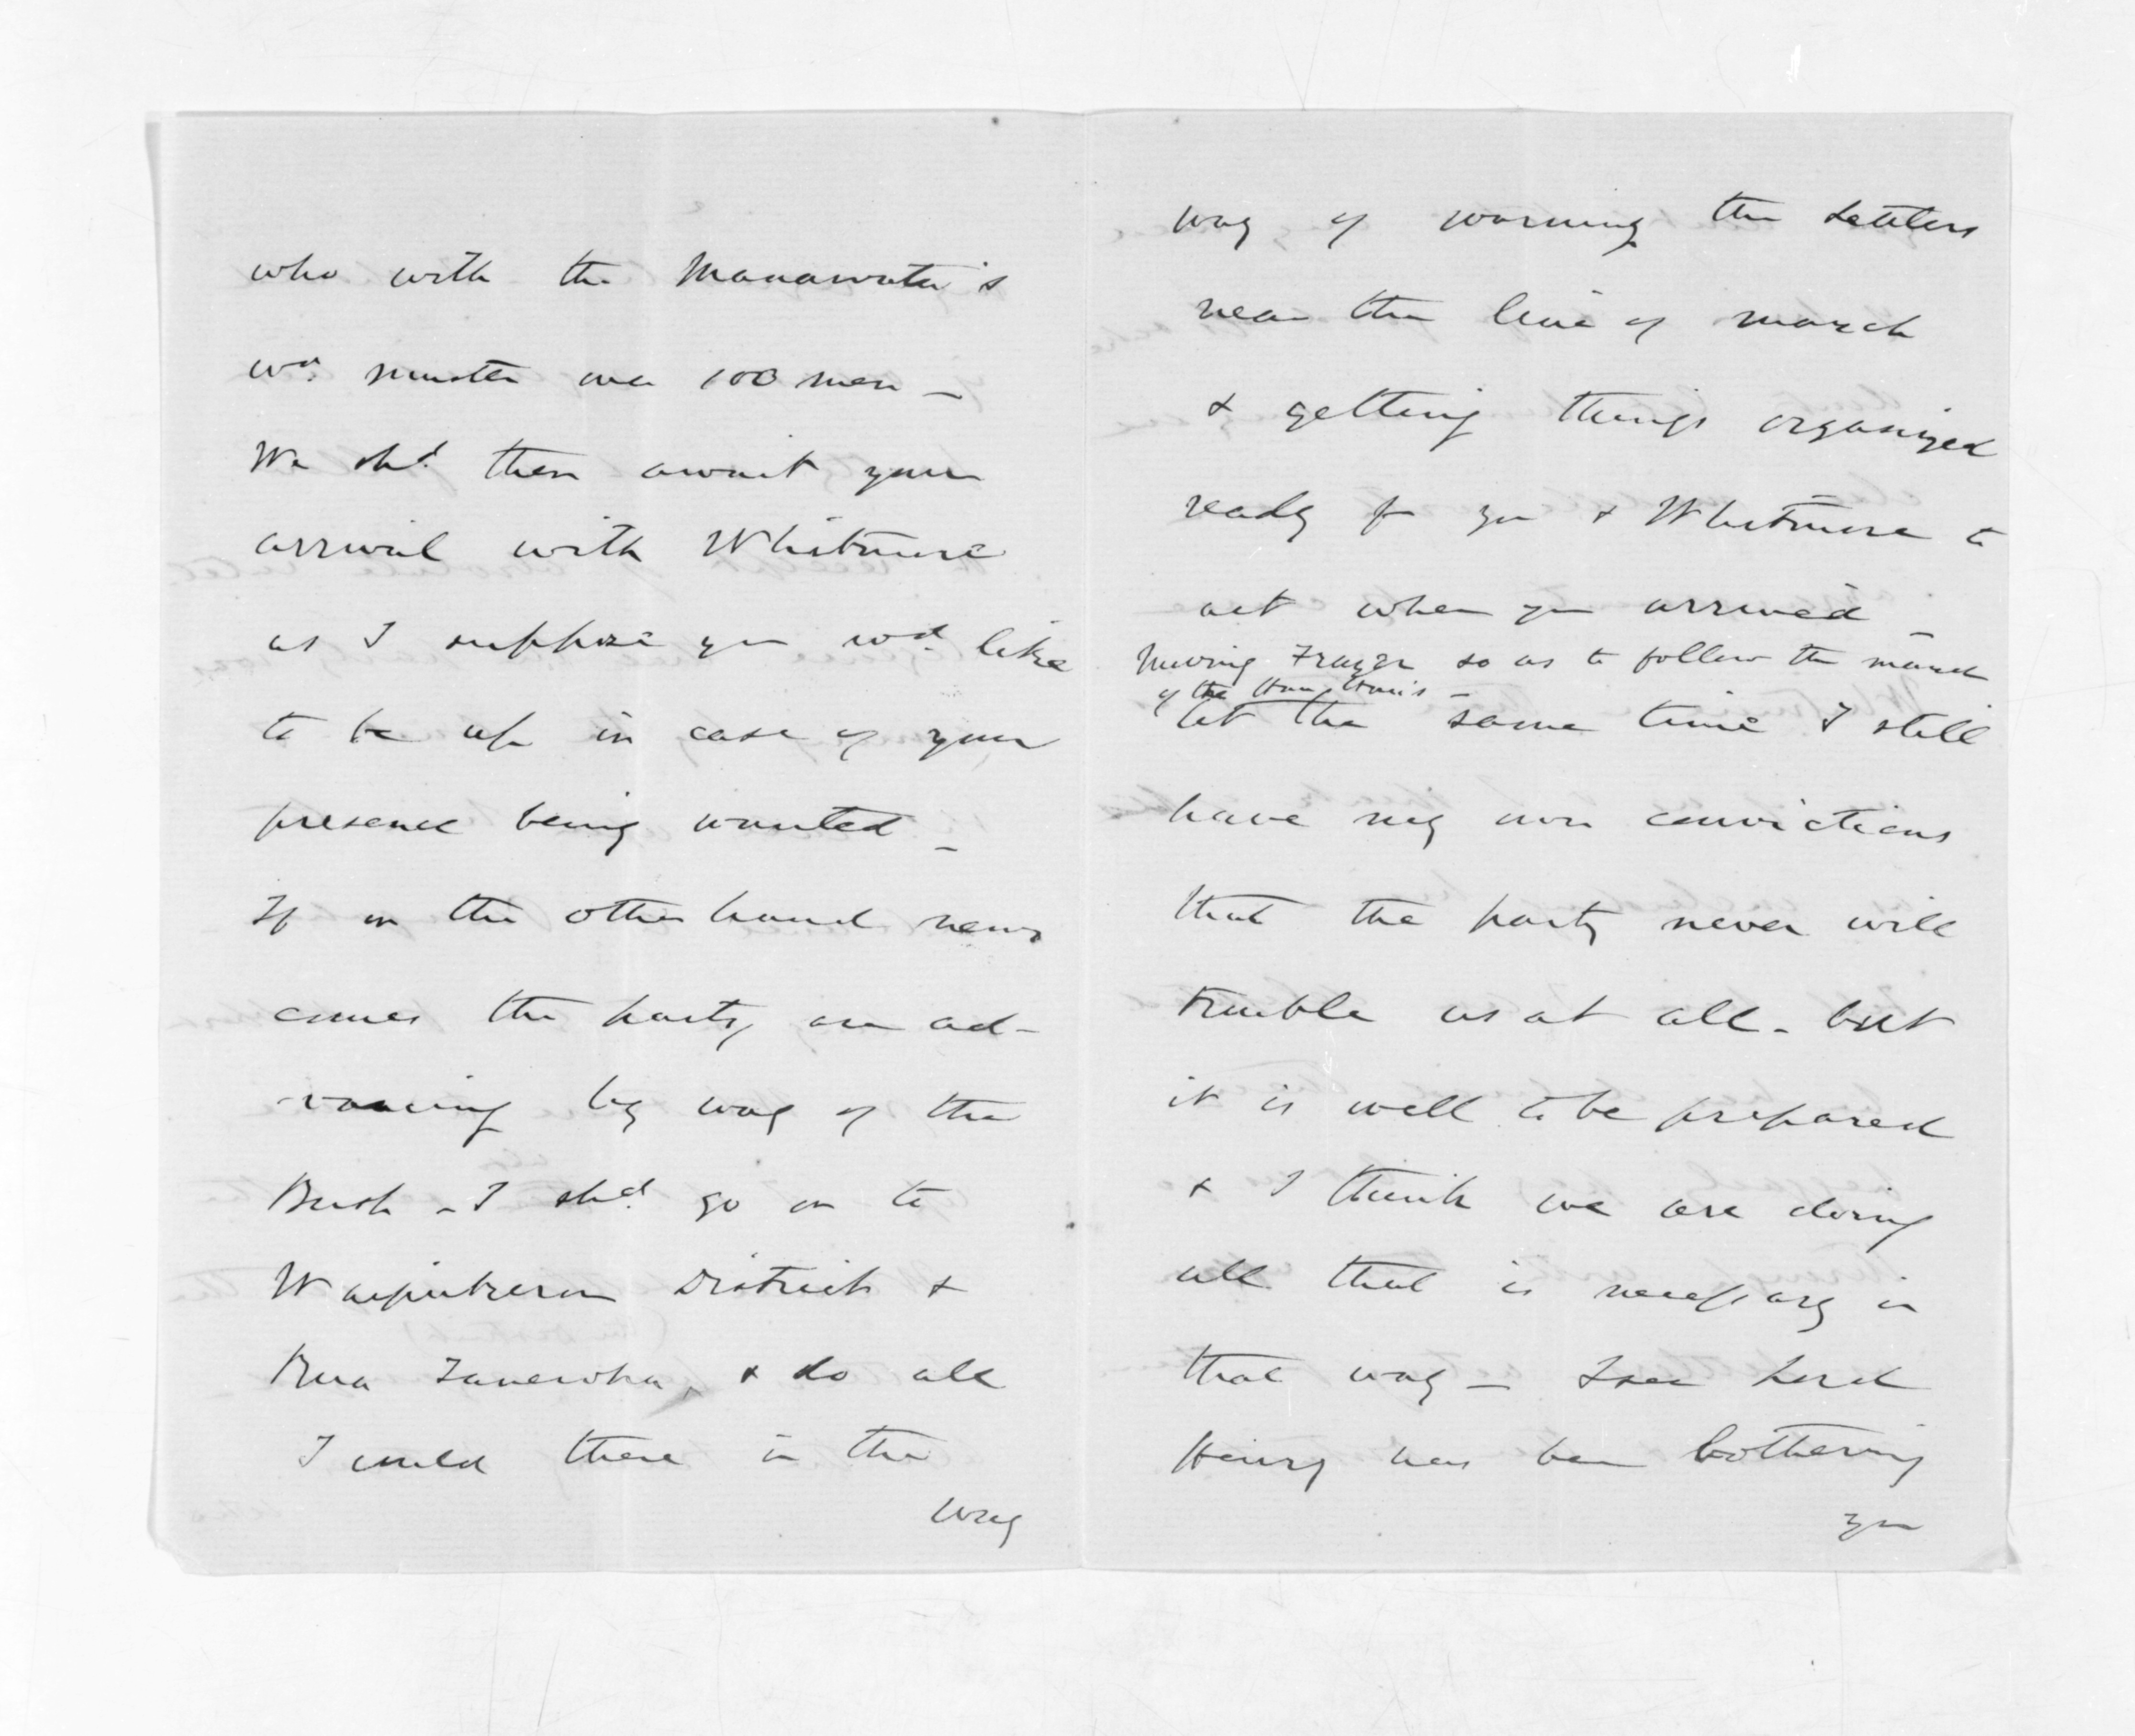 who with the Manawatu's
wd. muster over 100 men _
We shd. then await your
arrival with Whitmore
as I suppose you wd. like
to be up in case of your
presence being wanted _
If on the other hand news
comes the party are ad-
-vancing by way of the
Bush - I shd. go on to
Waipukurau District &
Rua Taniwha, & do all
I could there in the
way
way of warning the settlers
near the line of march
& getting things organized
ready for you & Whitmore to
act when you arrived _
moving Frazer so as to follow the march
of the Hau Hau's _
At the same time I still
have my own convictions
that the party never will
trouble us at all - but
it is well to be prepared
& I think we are doing
all that is necessary in
that way _ I see Lord
Henry has been bothering
you